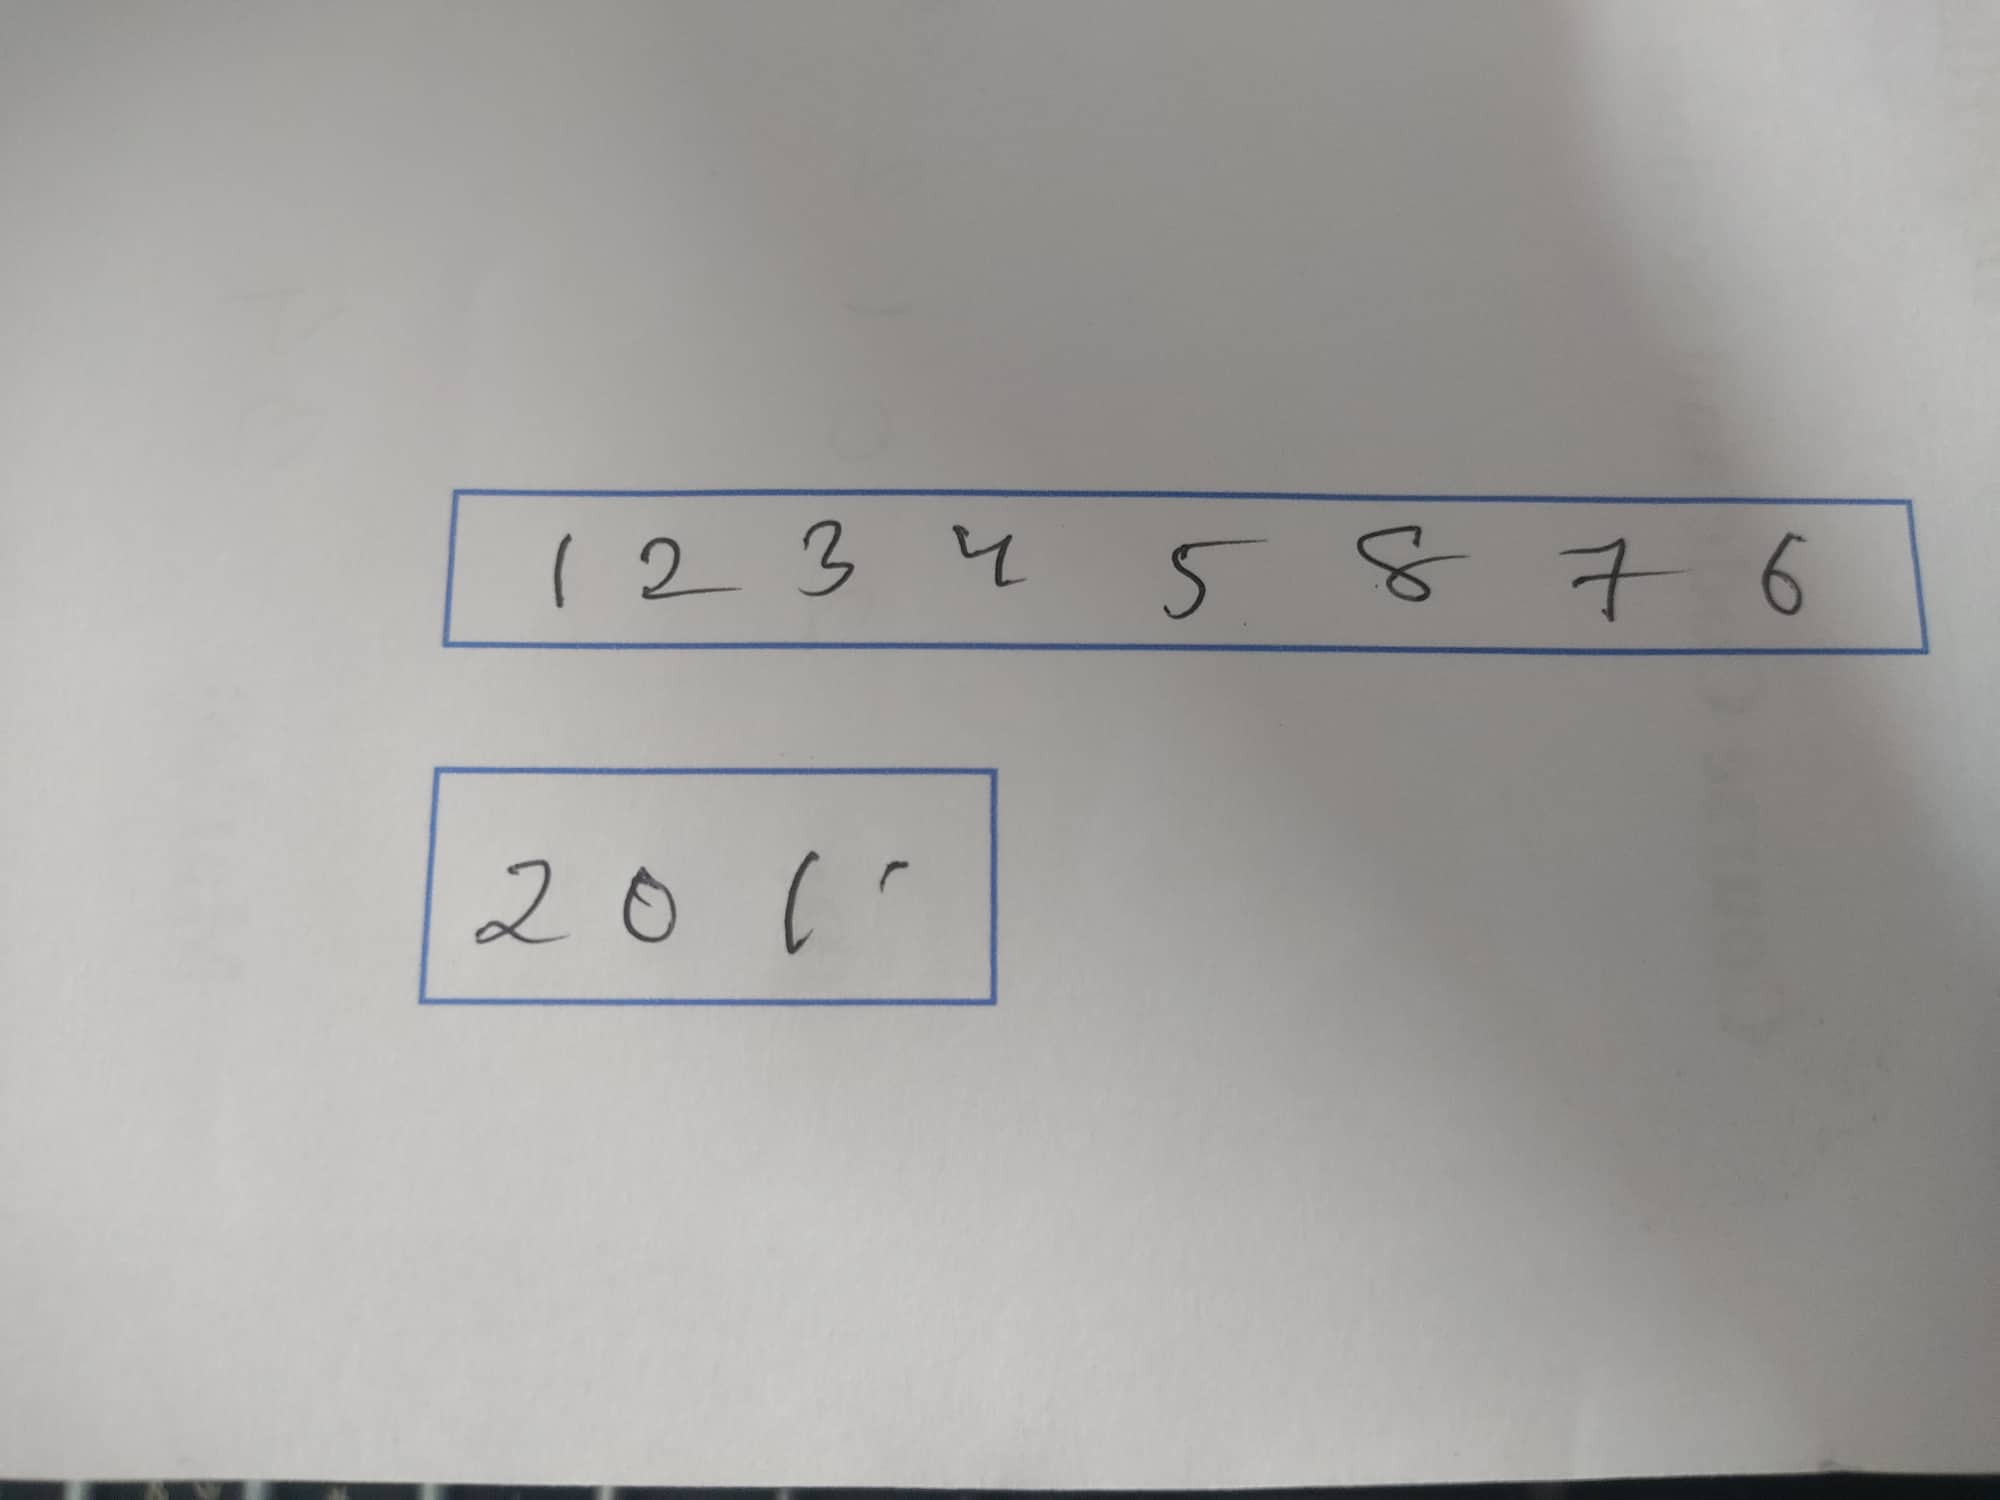 1 2 3 4 5 8 7 6
2 0 1